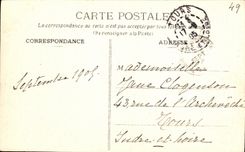 49
CARTE POSTALE
La correspondance au recto n'est pas acceptée par tous les pays étrangers
(Se renseigner à la Poste)
CORRESPONDANCE
ADRESSE
TOURS
Septembre 1905.
Mademoiselle
Jane Clogenson
43, rue de l'Archevêché
Tours
Indre et Loire